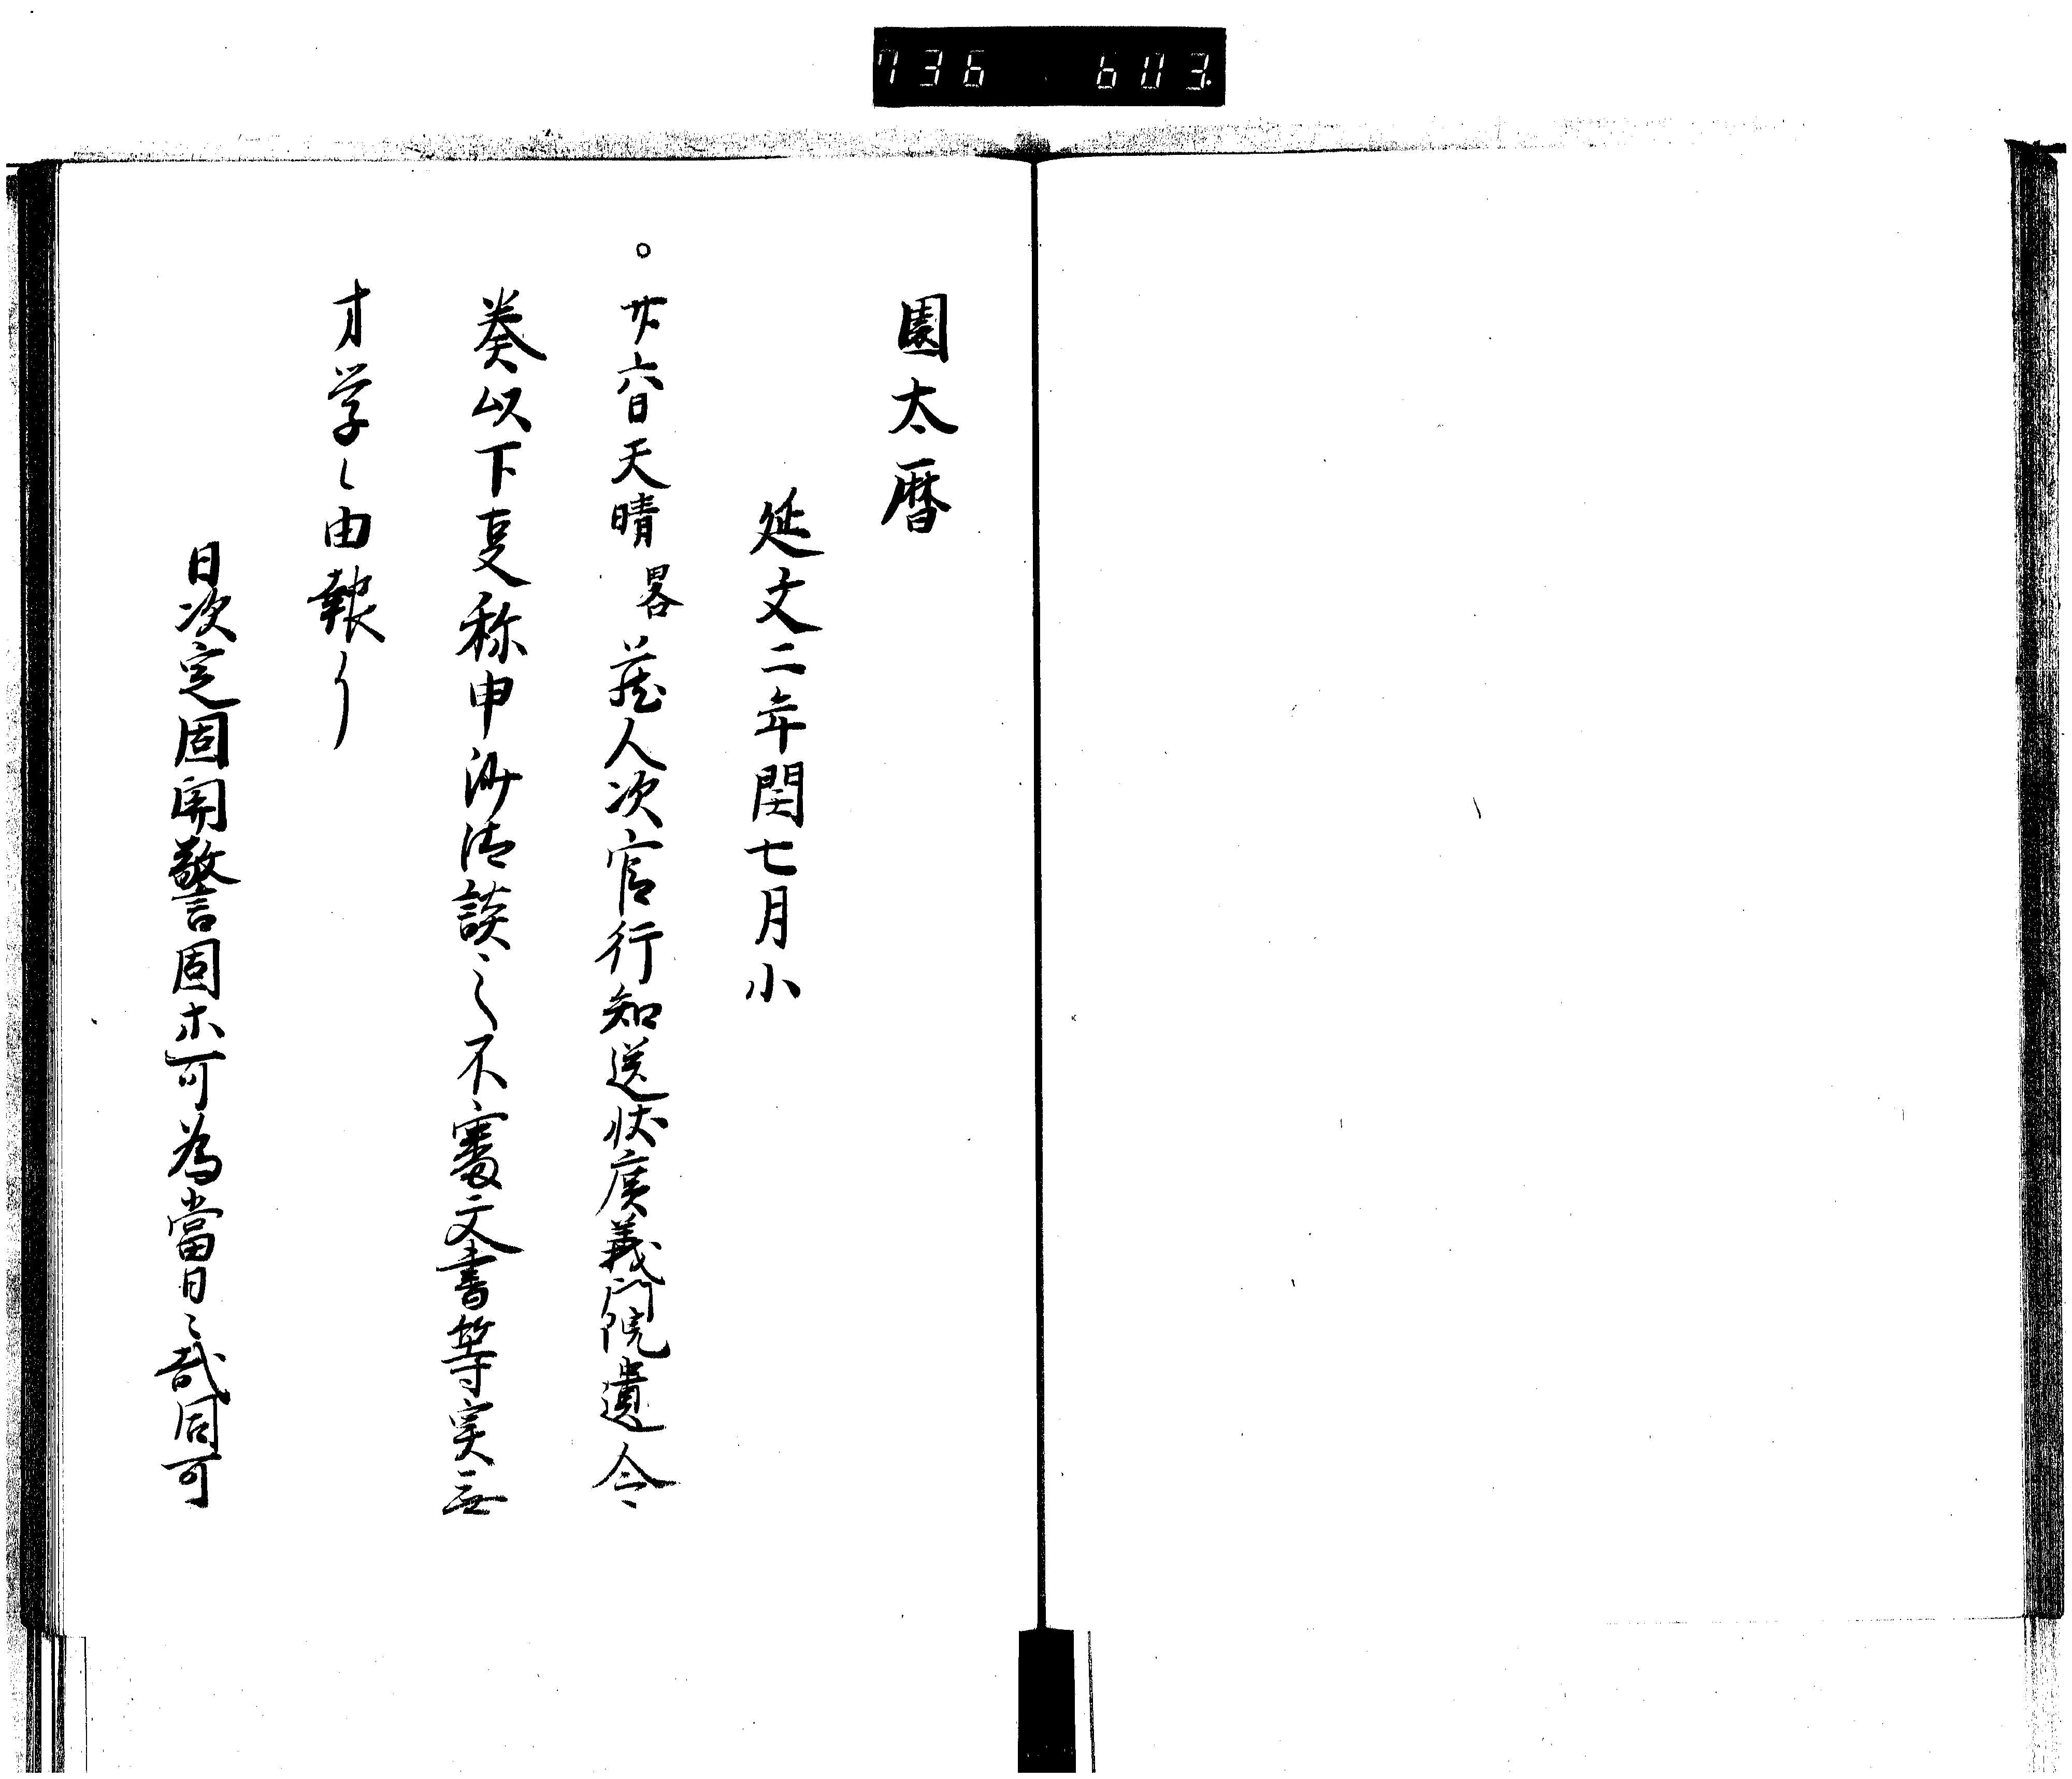 736 603
園太暦
延文二年閏七月小
。廿六日天晴畧蔵人次官行知送状廣義門院遺令
奏以下叓称申沙汰談之不審文書等実無
才学之由報了
日次定固関警固ホ可為當日之哉同可